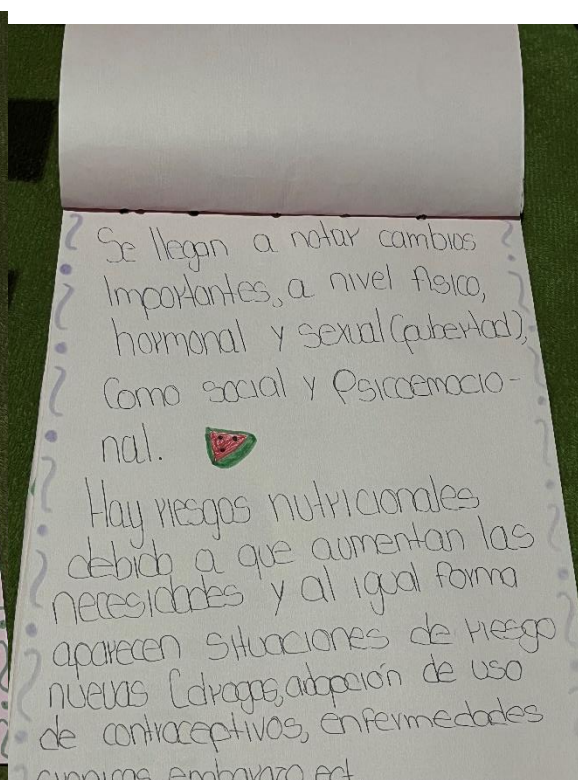 Se llegan a notar cambios
Importantes, a nivel físico,
hormonal y sexual (pubertad),
Como social y Psicoemocio-
nal.
Hay riesgos nutricionales
debido a que aumentan las
necesidades y al igual forma
aparecen situaciones de riesgo
nuevas (drogas, adopción de uso
de contraceptivos, enfermedades
cronicas embarazo ect